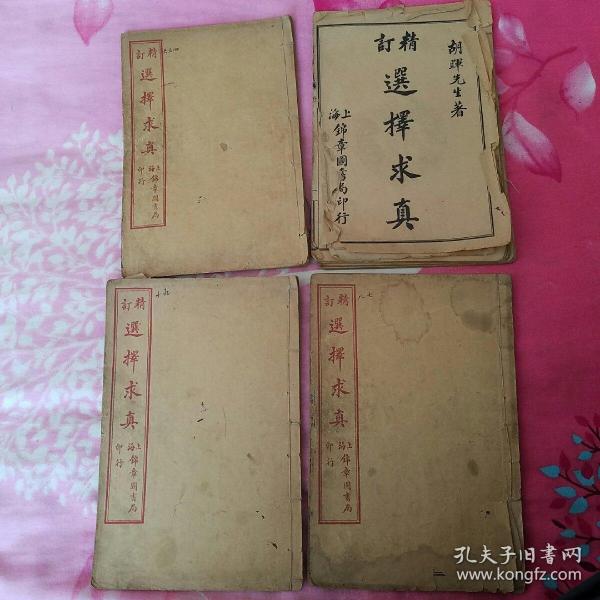 精訂
選擇求真
上海錦章圖書局
印行
胡暉先生著
精訂
選擇求真
上海錦章圖書局印行
精訂
選擇求真
上海錦章圖書局
印行
九十
精訂
選擇求真
上海錦章圖書局
印行
七八
孔夫子旧书网
www.kongfz.com